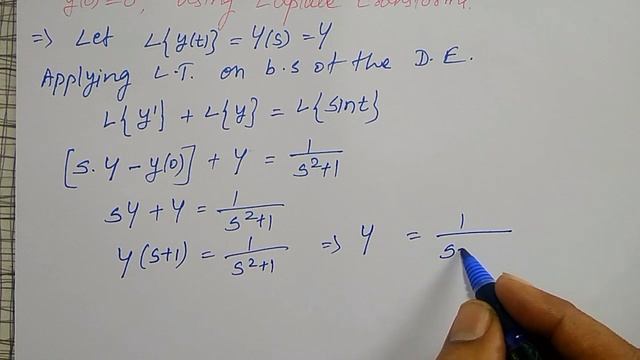 y(0)=0, using Laplace transform.
⇒ Let L{y(t)} = Y(s) = Y
Applying L.T. on b.s of the D.E.
L{y'} + L{y} = L{sint}
[s.y − y(0)] + y = 1/(s²+1)
sy + y = 1/(s²+1)
y(s+1) = 1/(s²+1) ⇒ y = 1/s